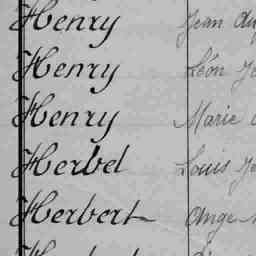 Henry Jean
Henry Léon
Henry Marie
Herbel Louis
Herbert Ange